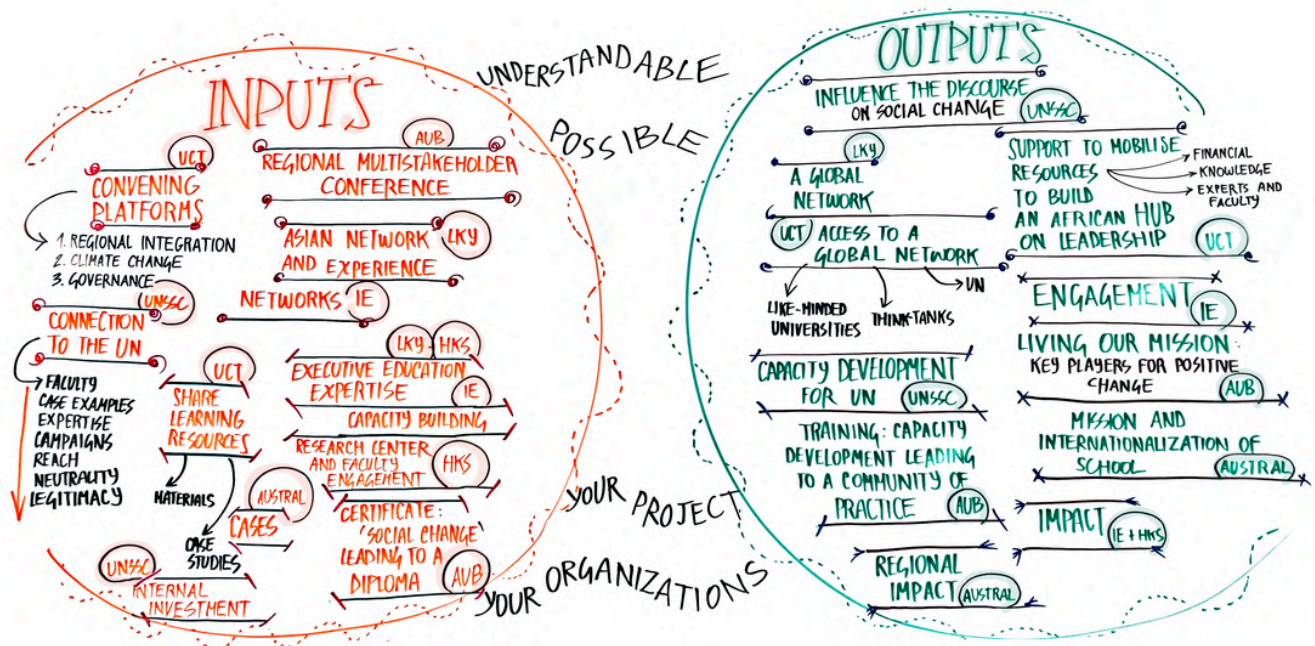 INPUTS
UCT
CONVENING
PLATFORMS
1. REGIONAL INTEGRATION
2. CLIMATE CHANGE
3. GOVERNANCE
UNSSC
CONNECTION
TO THE UN
FACULTY
CASE EXAMPLES
EXPERTISE
CAMPAIGNS
REACH
NEUTRALITY
LEGITIMACY
AUB
REGIONAL MULTISTAKEHOLDER
CONFERENCE
ASIAN NETWORK
AND EXPERIENCE
LKY
NETWORKS IE
UCT
SHARE
LEARNING
RESOURCES
MATERIALS
CASE
STUDIES
AUSTRAL
CASES
UNSSC
INTERNAL
INVESTMENT
LKY HKS
EXECUTIVE EDUCATION
EXPERTISE
IE
CAPACITY BUILDING
RESEARCH CENTER
AND FACULTY
ENGAGEMENT
HKS
CERTIFICATE:
'SOCIAL CHANGE'
LEADING TO A
DIPLOMA
AUB
UNDERSTANDABLE
POSSIBLE
YOUR PROJECT
YOUR ORGANIZATIONS
OUTPUTS
INFLUENCE THE DISCOURSE
ON SOCIAL CHANGE
UNSSC
LKY
A GLOBAL
NETWORK
UCT
ACCESS TO A
GLOBAL NETWORK
LIKE-MINDED
UNIVERSITIES
THINK-TANKS
UN
CAPACITY DEVELOPMENT
FOR UN
UNSSC
TRAINING: CAPACITY
DEVELOPMENT LEADING
TO A COMMUNITY OF
PRACTICE
AUB
REGIONAL
IMPACT
AUSTRAL
SUPPORT TO MOBILISE
RESOURCES
TO BUILD
AN AFRICAN HUB
ON LEADERSHIP
FINANCIAL
KNOWLEDGE
EXPERTS AND
FACULTY
UCT
ENGAGEMENT
IE
LIVING OUR MISSION:
KEY PLAYERS FOR POSITIVE
CHANGE
AUB
MISSION AND
INTERNATIONALIZATION OF
SCHOOL
AUSTRAL
IMPACT
IE + HKS